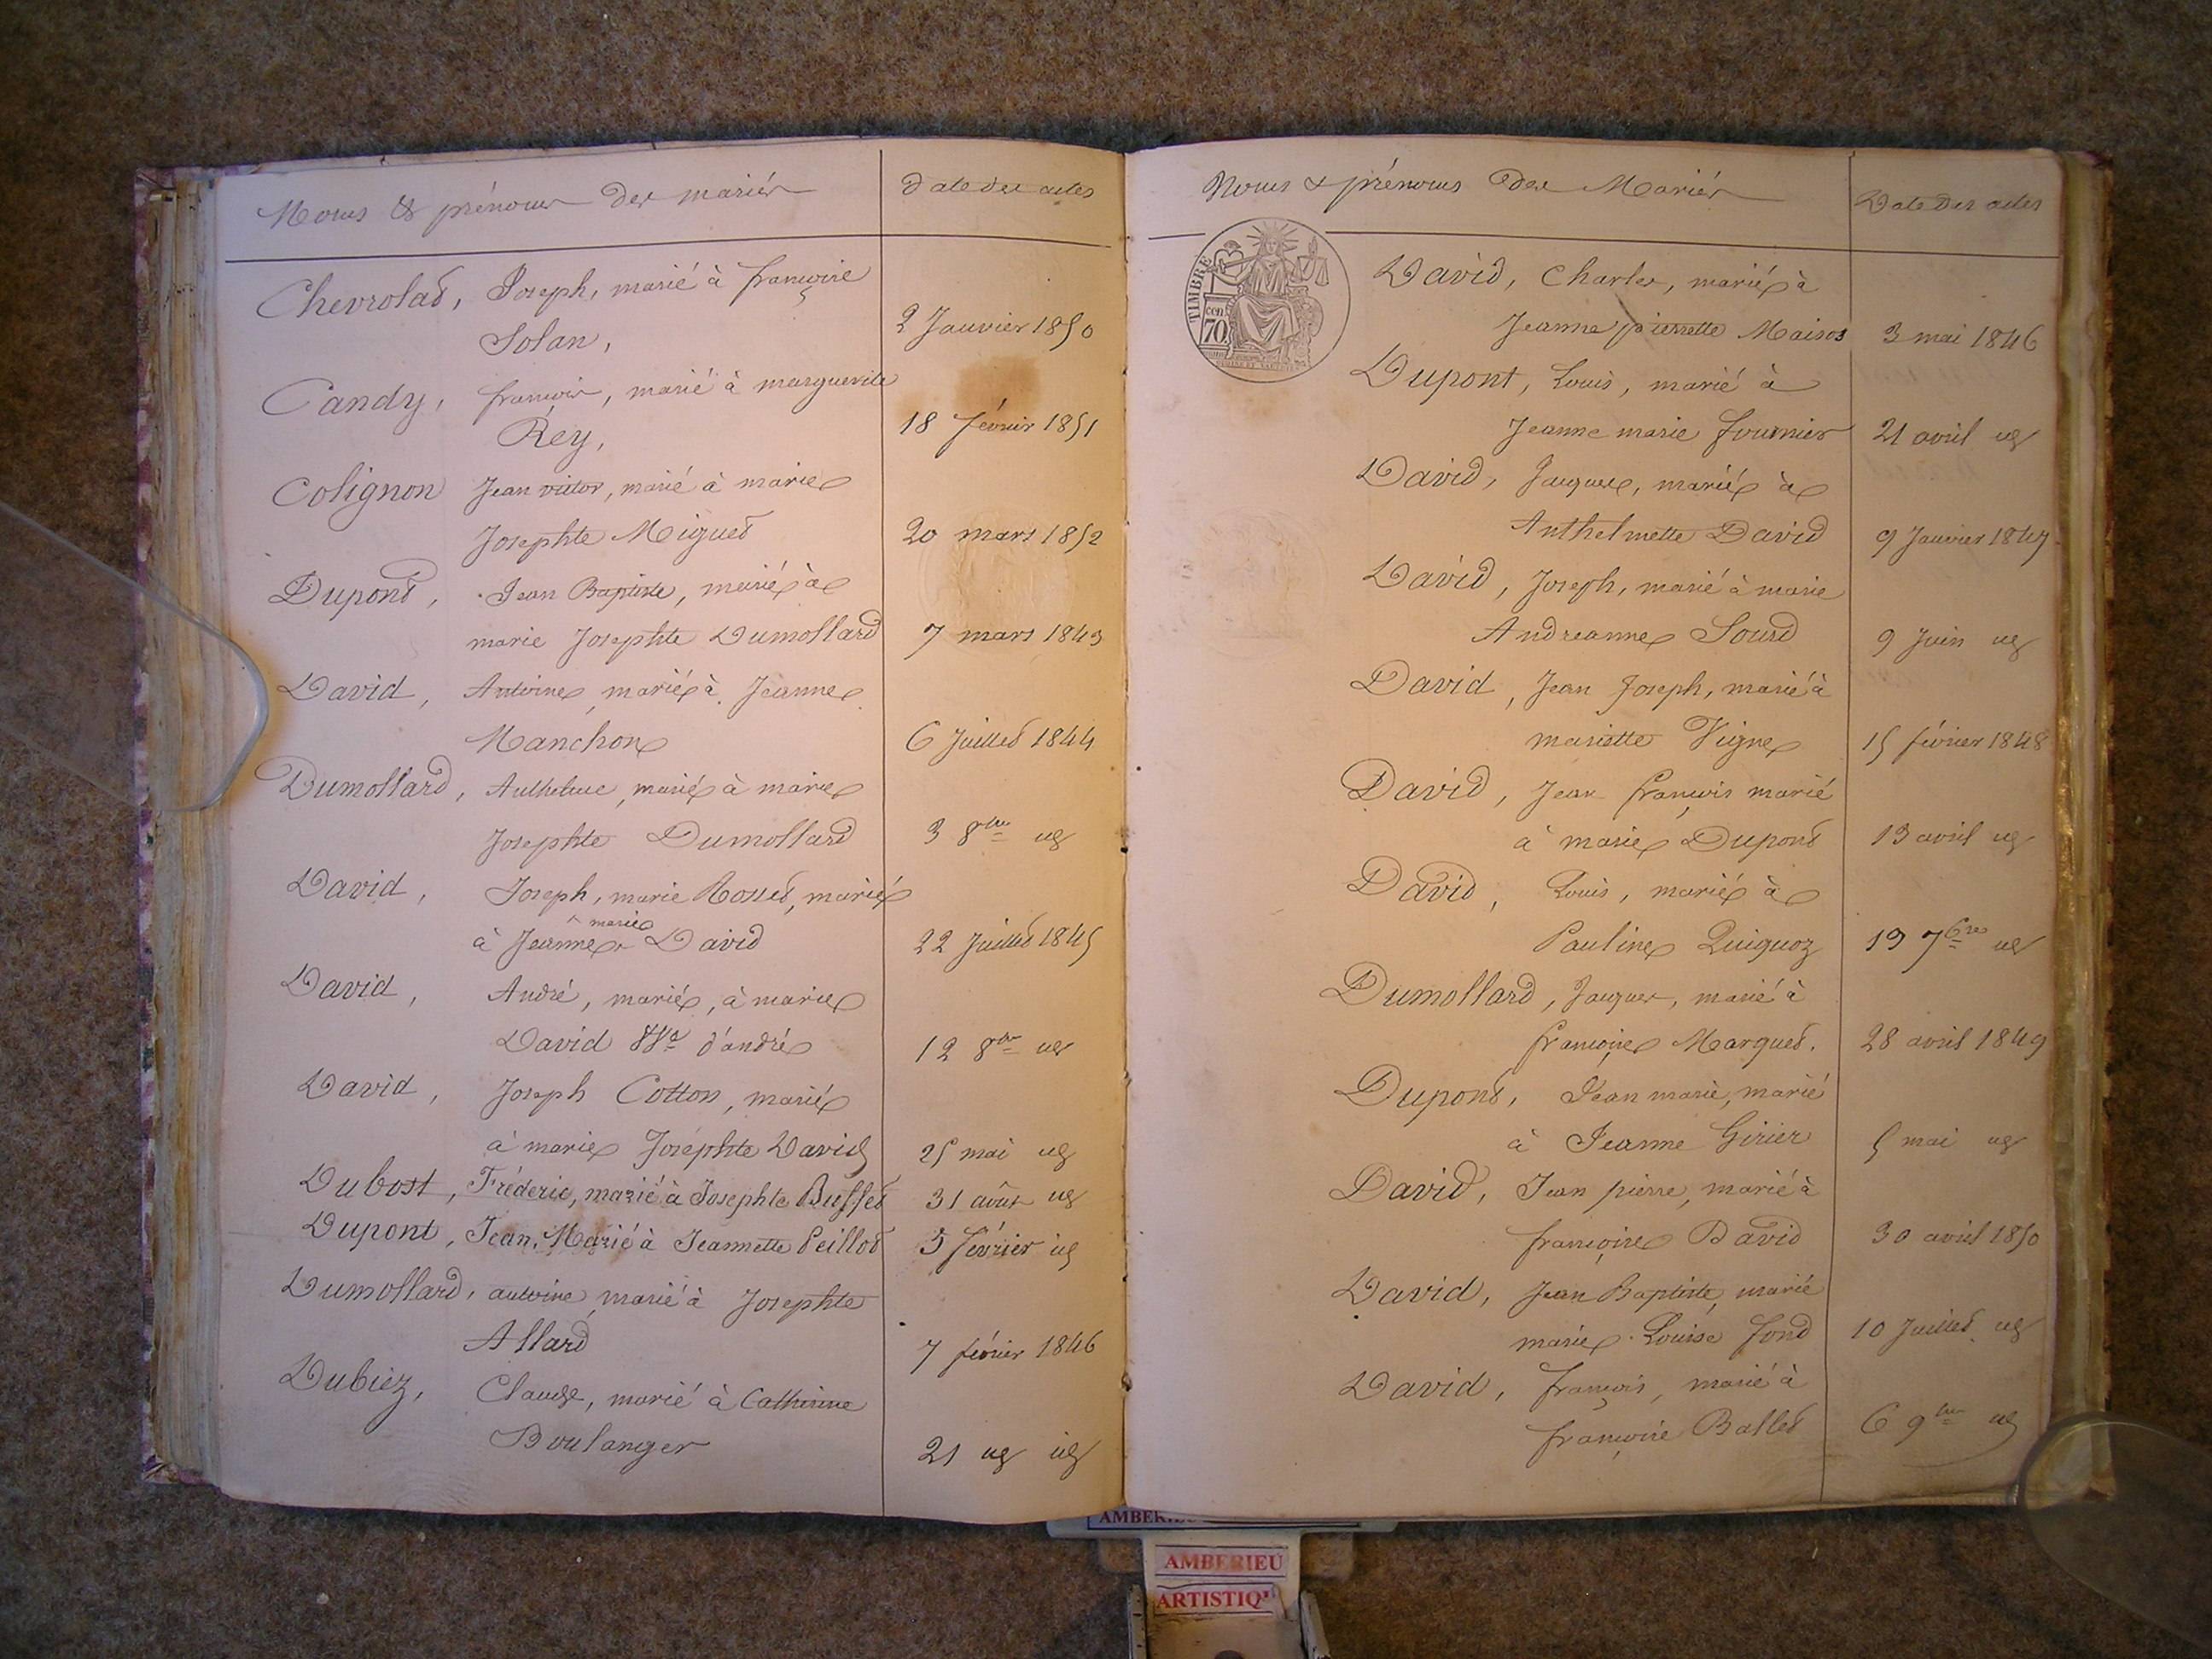 Noms & prénoms des mariés
Date des actes
Chevrolat, Joseph, marié à françoise
Solan,
2 Janvier 1850
Candy, françois, marié à marguerite
Rey,
18 février 1851
Colignon Jean victor, marié à marie
Josephte Miguet
20 mars 1852
Dupont, Jean Baptiste, marié à
marie Josephte Dumollard
7 mars 1843
David, Antoine, marié à Jeanne
Manchon
6 Juillet 1844
Dumollard, Anthelme, marié à marie
Josephte Dumollard
3 8bre
David, Joseph, marie Rosset, marié
marie
à Jeanne David
22 Juillet 1845
David, André, marié, à marie
David Vve d'andré
12 8bre
David, Joseph Cotton, marié
à marie Joséphte David
25 mai
Dubost, Fréderic, marié à Josephte Buffet
31 août
Dupont, Jean, Marié à Jeannette Peillod
5 février
Dumollard, antoine, marié à Josephte
Allard
7 février 1846
Dubiez, Claude, marié à Catherine
Boulanger
21
Noms & prénoms des Mariés
Date des actes
TIMBRE
cen.
70
David, Charles, marié à
Jeanne pierrette Maisos
3 mai 1846
Dupont, Louis, marié à
Jeanne marie fournier
21 avril
David, Jacques, marié à
Anthelmette David
9 Janvier 1847
David, Joseph, marié à marie
Andreanne Sourd
9 Juin
David, Jean Joseph, marié à
mariette Vigne
15 février 1848
David, Jean françois marié
à marie Dupont
13 avril
David, Louis, marié à
Pauline Quiquoz
19 7bre
Dumollard, Jacques, marié à
françoise Marquet.
28 avril 1849
Dupont, Jean marie, marié
à Jeanne Girier
5 mai
David, Jean pierre, marié à
françoise David
30 avril 1850
David, Jean Baptiste, marié
marie Louise fond
10 Juillet
David, françois, marié à
françoise Ballet
6 9bre
AMBERIEU
ARTISTIQ